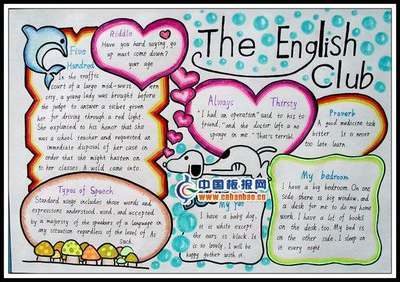 The English
Club
Riddle
Have you hard saying, go
up must come down?
your age
Five
Hundred
In the traffic
court of a large mid-west
city, a young lady was brought before
the judge to answer a ticket given
her for driving through a red light.
She explained to his honor that she
was a school teacher and requested an
immediate disposal of her case in
order that she might hasten on
to her classes. A wild came into
Always Thirsty
"I had an operation" said to his to
friend, "and the doctor left a
sponge in me." "That's terrible!
Proverb
A good medicine took
bitter. It is never
too late learn.
Types of Speech
Standard usage includes those words and
expressions understood, used, and accepted
by a majority of the speakers of a language in
any situation regardless of the level of
such.
中国板报网
www.cnbanbao.cn
My pet
I have a baby dog,
it is white except
the ears is black. It
is so lovely. I will be
happy gother with it.
My badroom
I have a big bedroom. On one
side there is big window, and
a desk for me to do my home
work. I have a lot of books
on the desk, too. My bed is
on the other side. I sleep on
it every night.